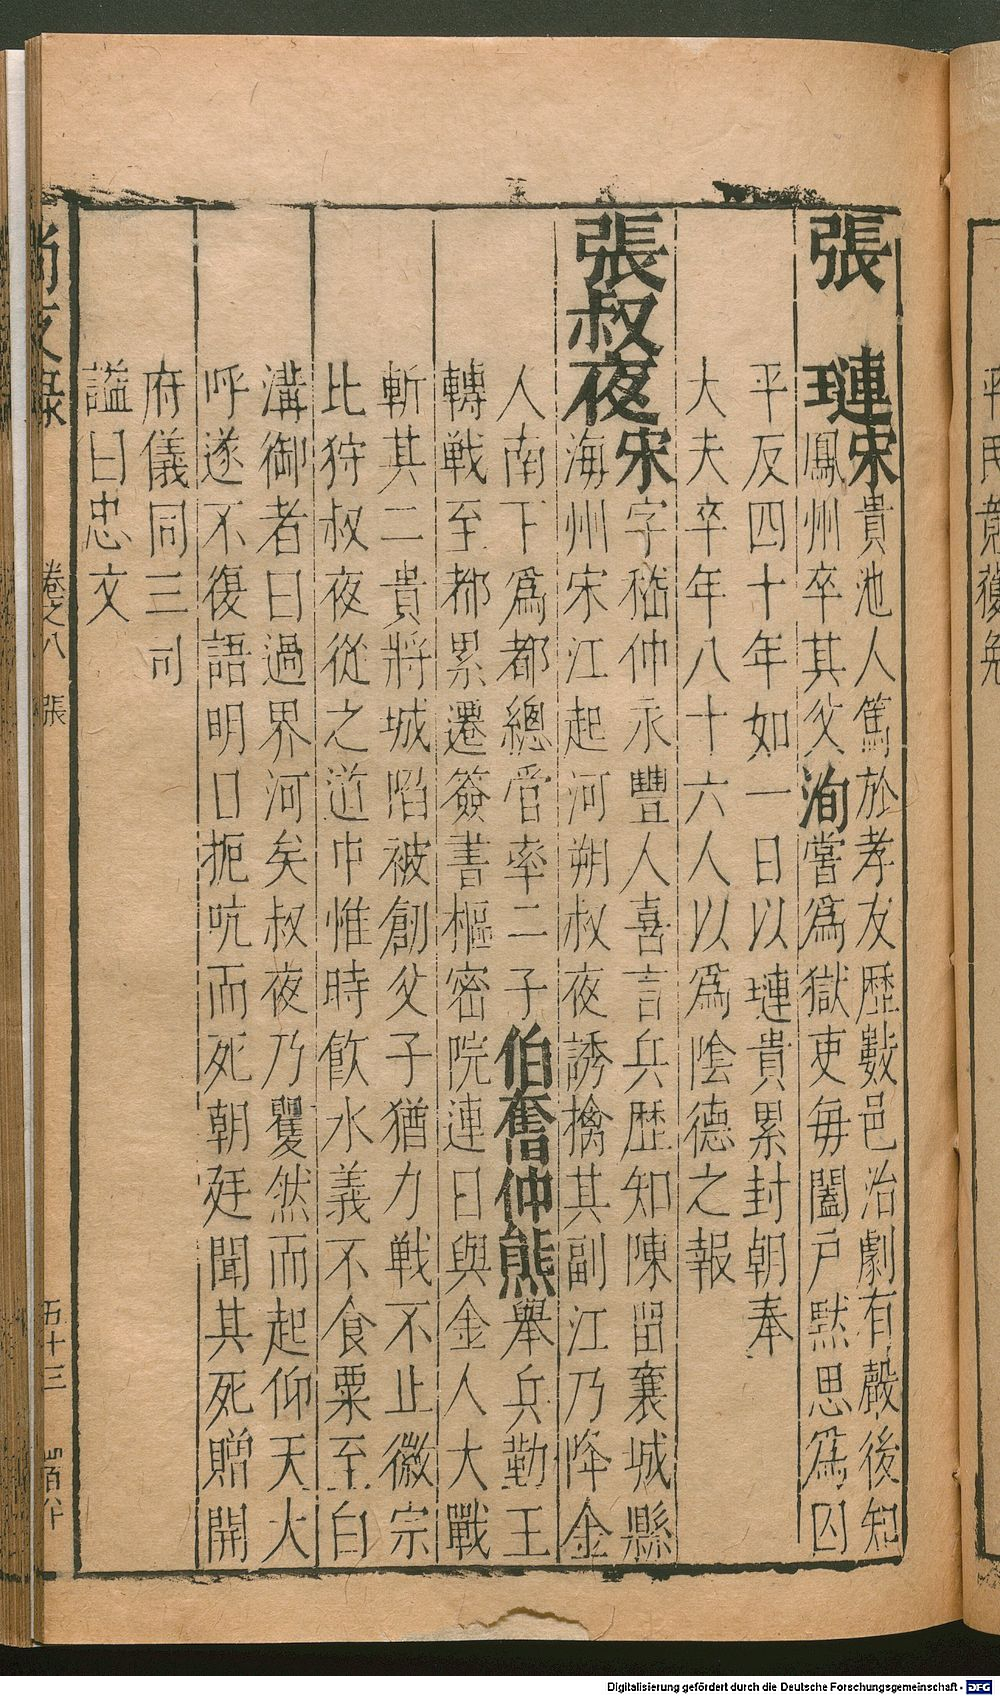 張　璉宋貴池人篤於孝友歷數邑治劇有聲後知
鳳州卒其父洵嘗爲獄吏每闔戶默思爲囚
平反四十年如一日以璉貴累封朝奉
大夫卒年八十六人以爲陰德之報
張叔夜宋字嵇仲永豐人喜言兵歷知陳留襄城縣
海州宋江起河朔叔夜誘擒其副江乃降金
人南下爲都總管率二子伯奮仲熊舉兵勤王
轉戰至都累遷簽書樞密院連日與金人大戰
斬其二貴將城陷被創父子猶力戰不止徽宗
比狩叔夜從之道中惟時飮水義不食粟至白
溝御者曰過界河矣叔夜乃矍然而起仰天大
呼遂不復語明日扼吭而死朝廷聞其死贈開
府儀同三司
謚曰忠文
尚友錄
卷之八
張
五十三
平民竟獲免
Digitalisierung gefördert durch die Deutsche Forschungsgemeinschaft - DFG